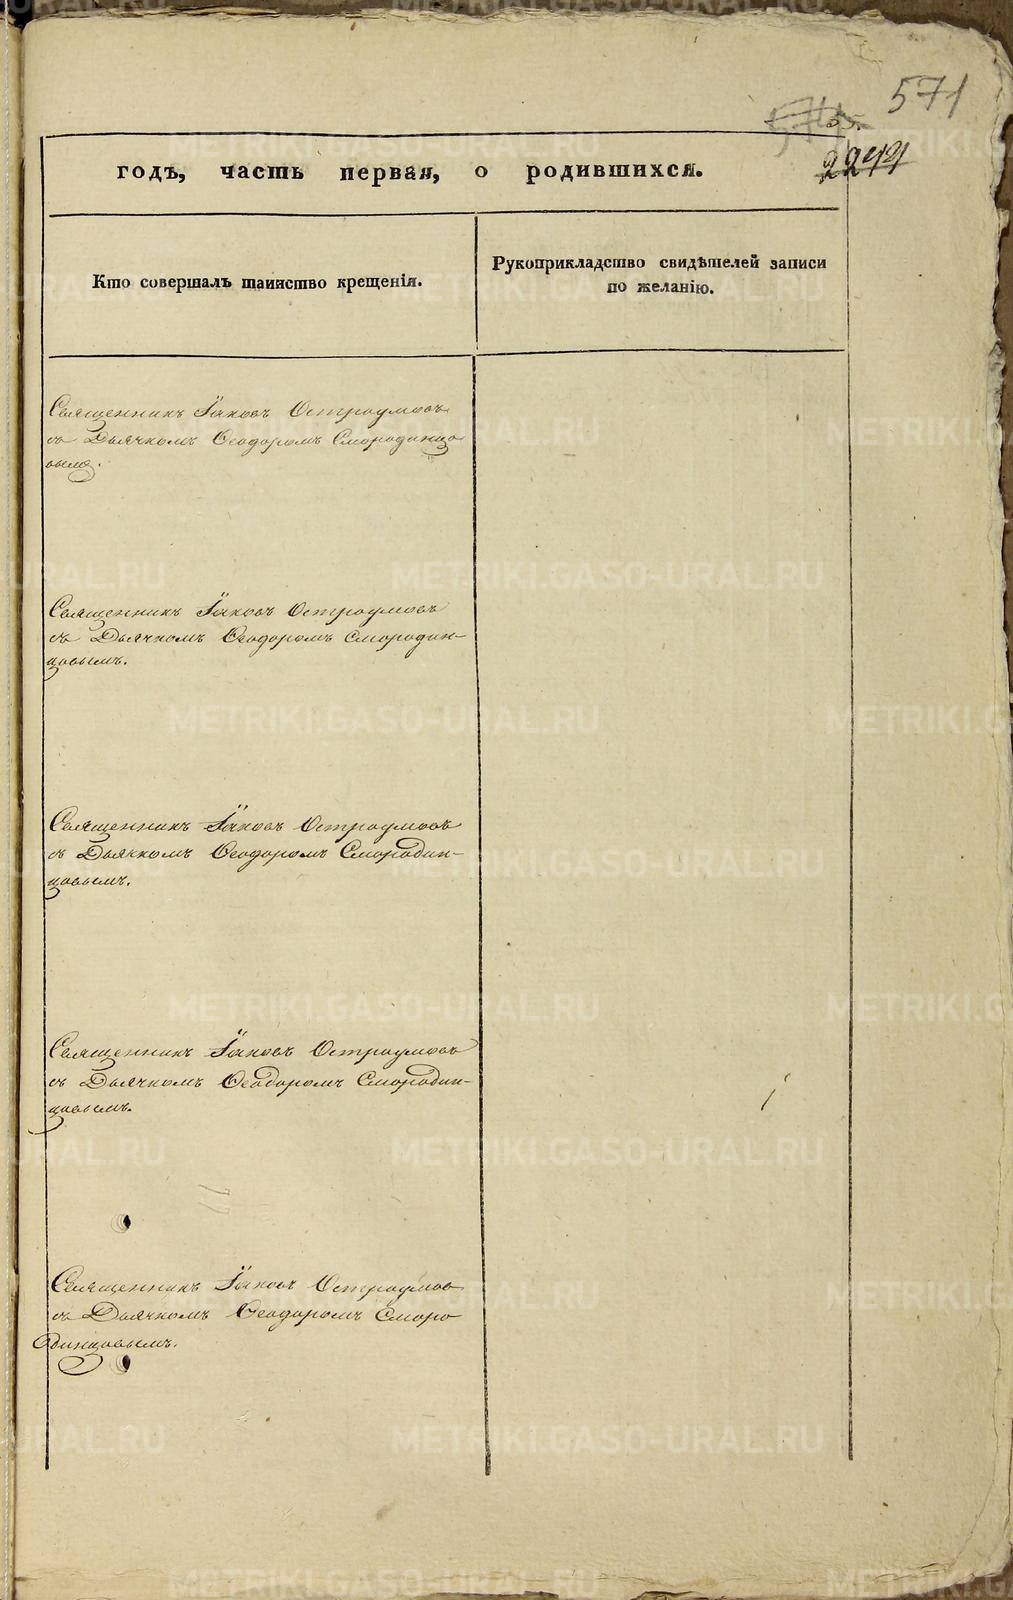 571
2244
годъ, часть первая, о родившихся.
Кто совершалъ таинство крещенія.
Рукоприкладство свидѣтелей записи
по желанію.
Священникъ Іаковъ Остроумовъ
съ Дьячкомъ Ѳеодоромъ Смородинцо
вымъ.
Священникъ Іаковъ Остроумовъ
съ Дьячкомъ Ѳеодоромъ Смородин-
цовымъ.
Священникъ Іаковъ Остроумовъ
съ Дьячкомъ Ѳеодоромъ Смородин-
цовымъ.
Священникъ Іаковъ Остроумовъ
съ Дьячкомъ Ѳеодоромъ Смородин-
цовымъ.
Священникъ Іаковъ Остроумов
съ Дьячкомъ Ѳеодоромъ Сморо
динцовымъ.
METRIKI.GASO-URAL.RU